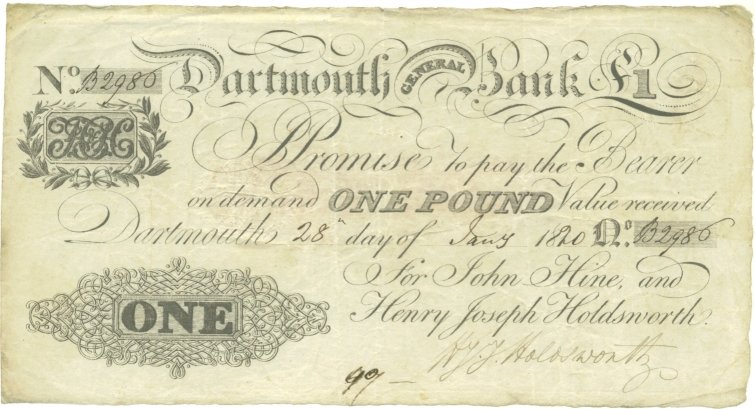 No. B2986 Dartmouth GENERAL Bank £1
I Promise to pay the Bearer
on demand ONE POUND Value received
Dartmouth 28th day of Jany 1820 No. B2986
For John Hine, and
Henry Joseph Holdsworth.
ONE
H. J. Holdsworth
99 —